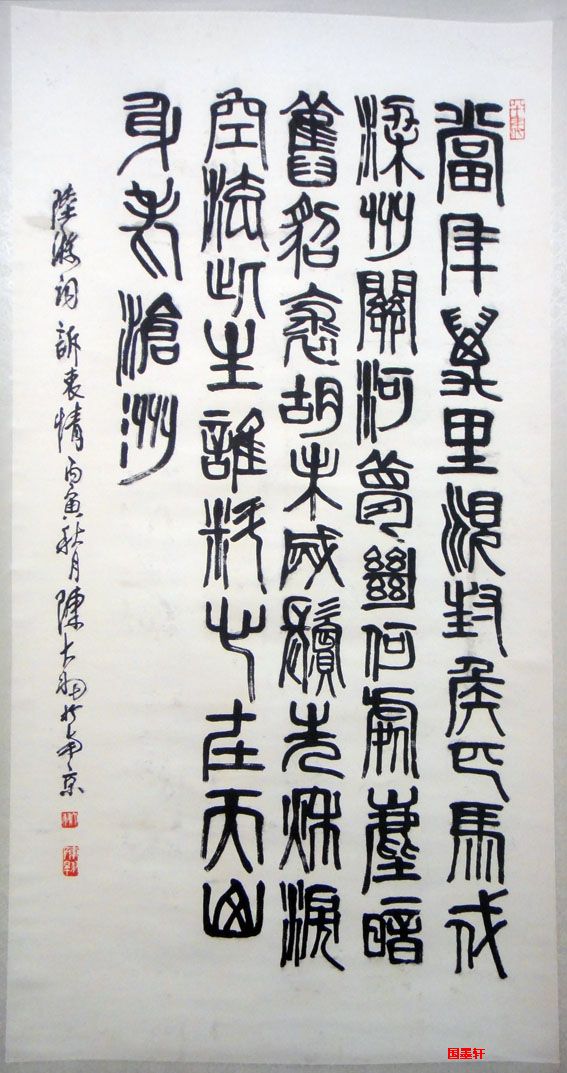 當年萬里覓封侯匹馬戍
梁州關河夢斷何處塵暗
舊貂裘胡未滅鬢先秋淚
空流此生誰料心在天山
身老滄洲
陸游詞訴衷情丙寅秋月陳大羽於南京
国墨轩